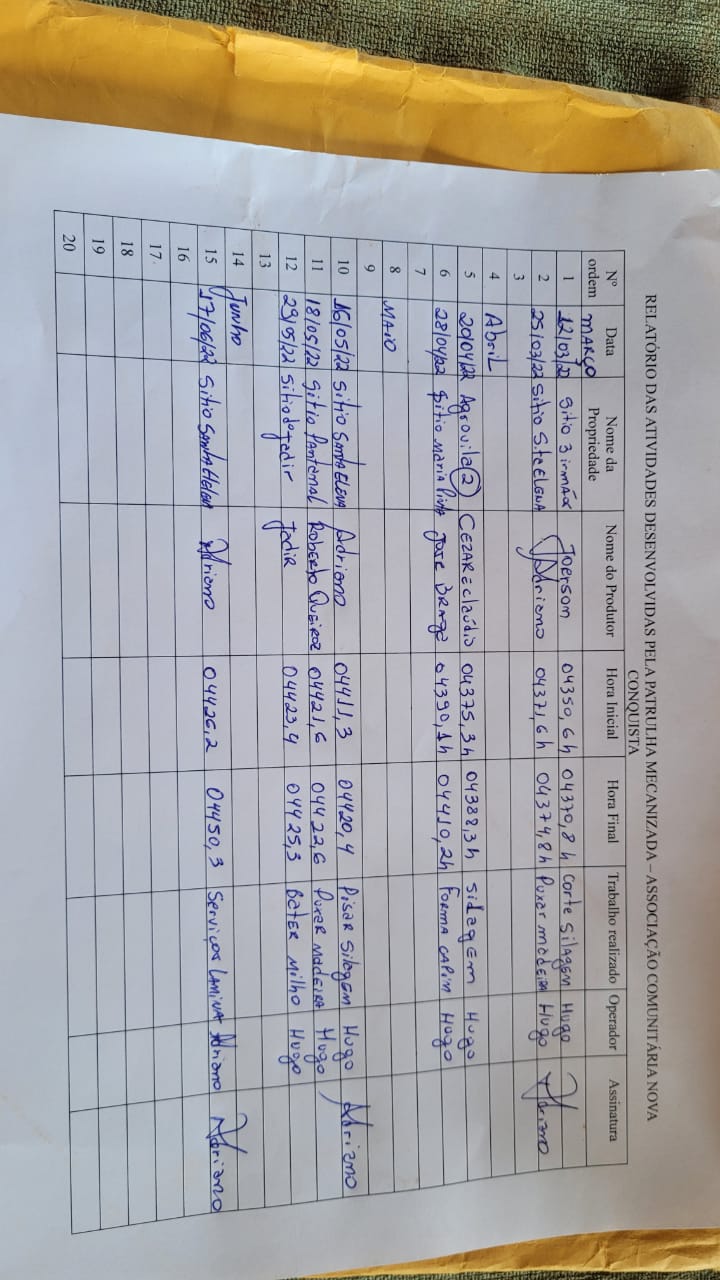 RELATÓRIO DAS ATIVIDADES DESENVOLVIDAS PELA PATRULHA MECANIZADA – ASSOCIAÇÃO COMUNITÁRIA NOVA
CONQUISTA
Nº ordem Data Nome da Propriedade Nome do Produtor Hora Inicial Hora Final Trabalho realizado Operador Assinatura
MARÇO
1 12/03/22 Sitio 3 irmãos Joerson 04350,6h 04370,8h Corte Silagem Hugo
2 25/03/22 Sitio Sta ELENA Adriano 04371,6h 04374,8h Puxar madeira Hugo Adriano
3
4 AbriL
5 20/04/22 Agrovila 2 CEZAR e claúdio 04375,3h 04388,3h silagem Hugo
6 28/04/22 Sitio Maria Jose BRAGA 04390,1h 04410,2h FORMA CAPIM Hugo
7
8 MAIO
9
10 16/05/22 Sitio Santa ELENA Adriano 04411,3 04420,4 Pisar Silagem Hugo Adriano
11 18/05/22 Sitio Pantanal Roberto Queiroz 04421,6 04422,6 Puxar MadeiRA Hugo
12 29/05/22 Sitio do Jadir Jadir 04423,4 04425,3 BATER Milho Hugo
13
14 Junho
15 17/06/22 Sitio Santa Helena Adriano 04426,2 04450,3 Serviços LAMINA Adriano Adriano
16
17.
18
19
20